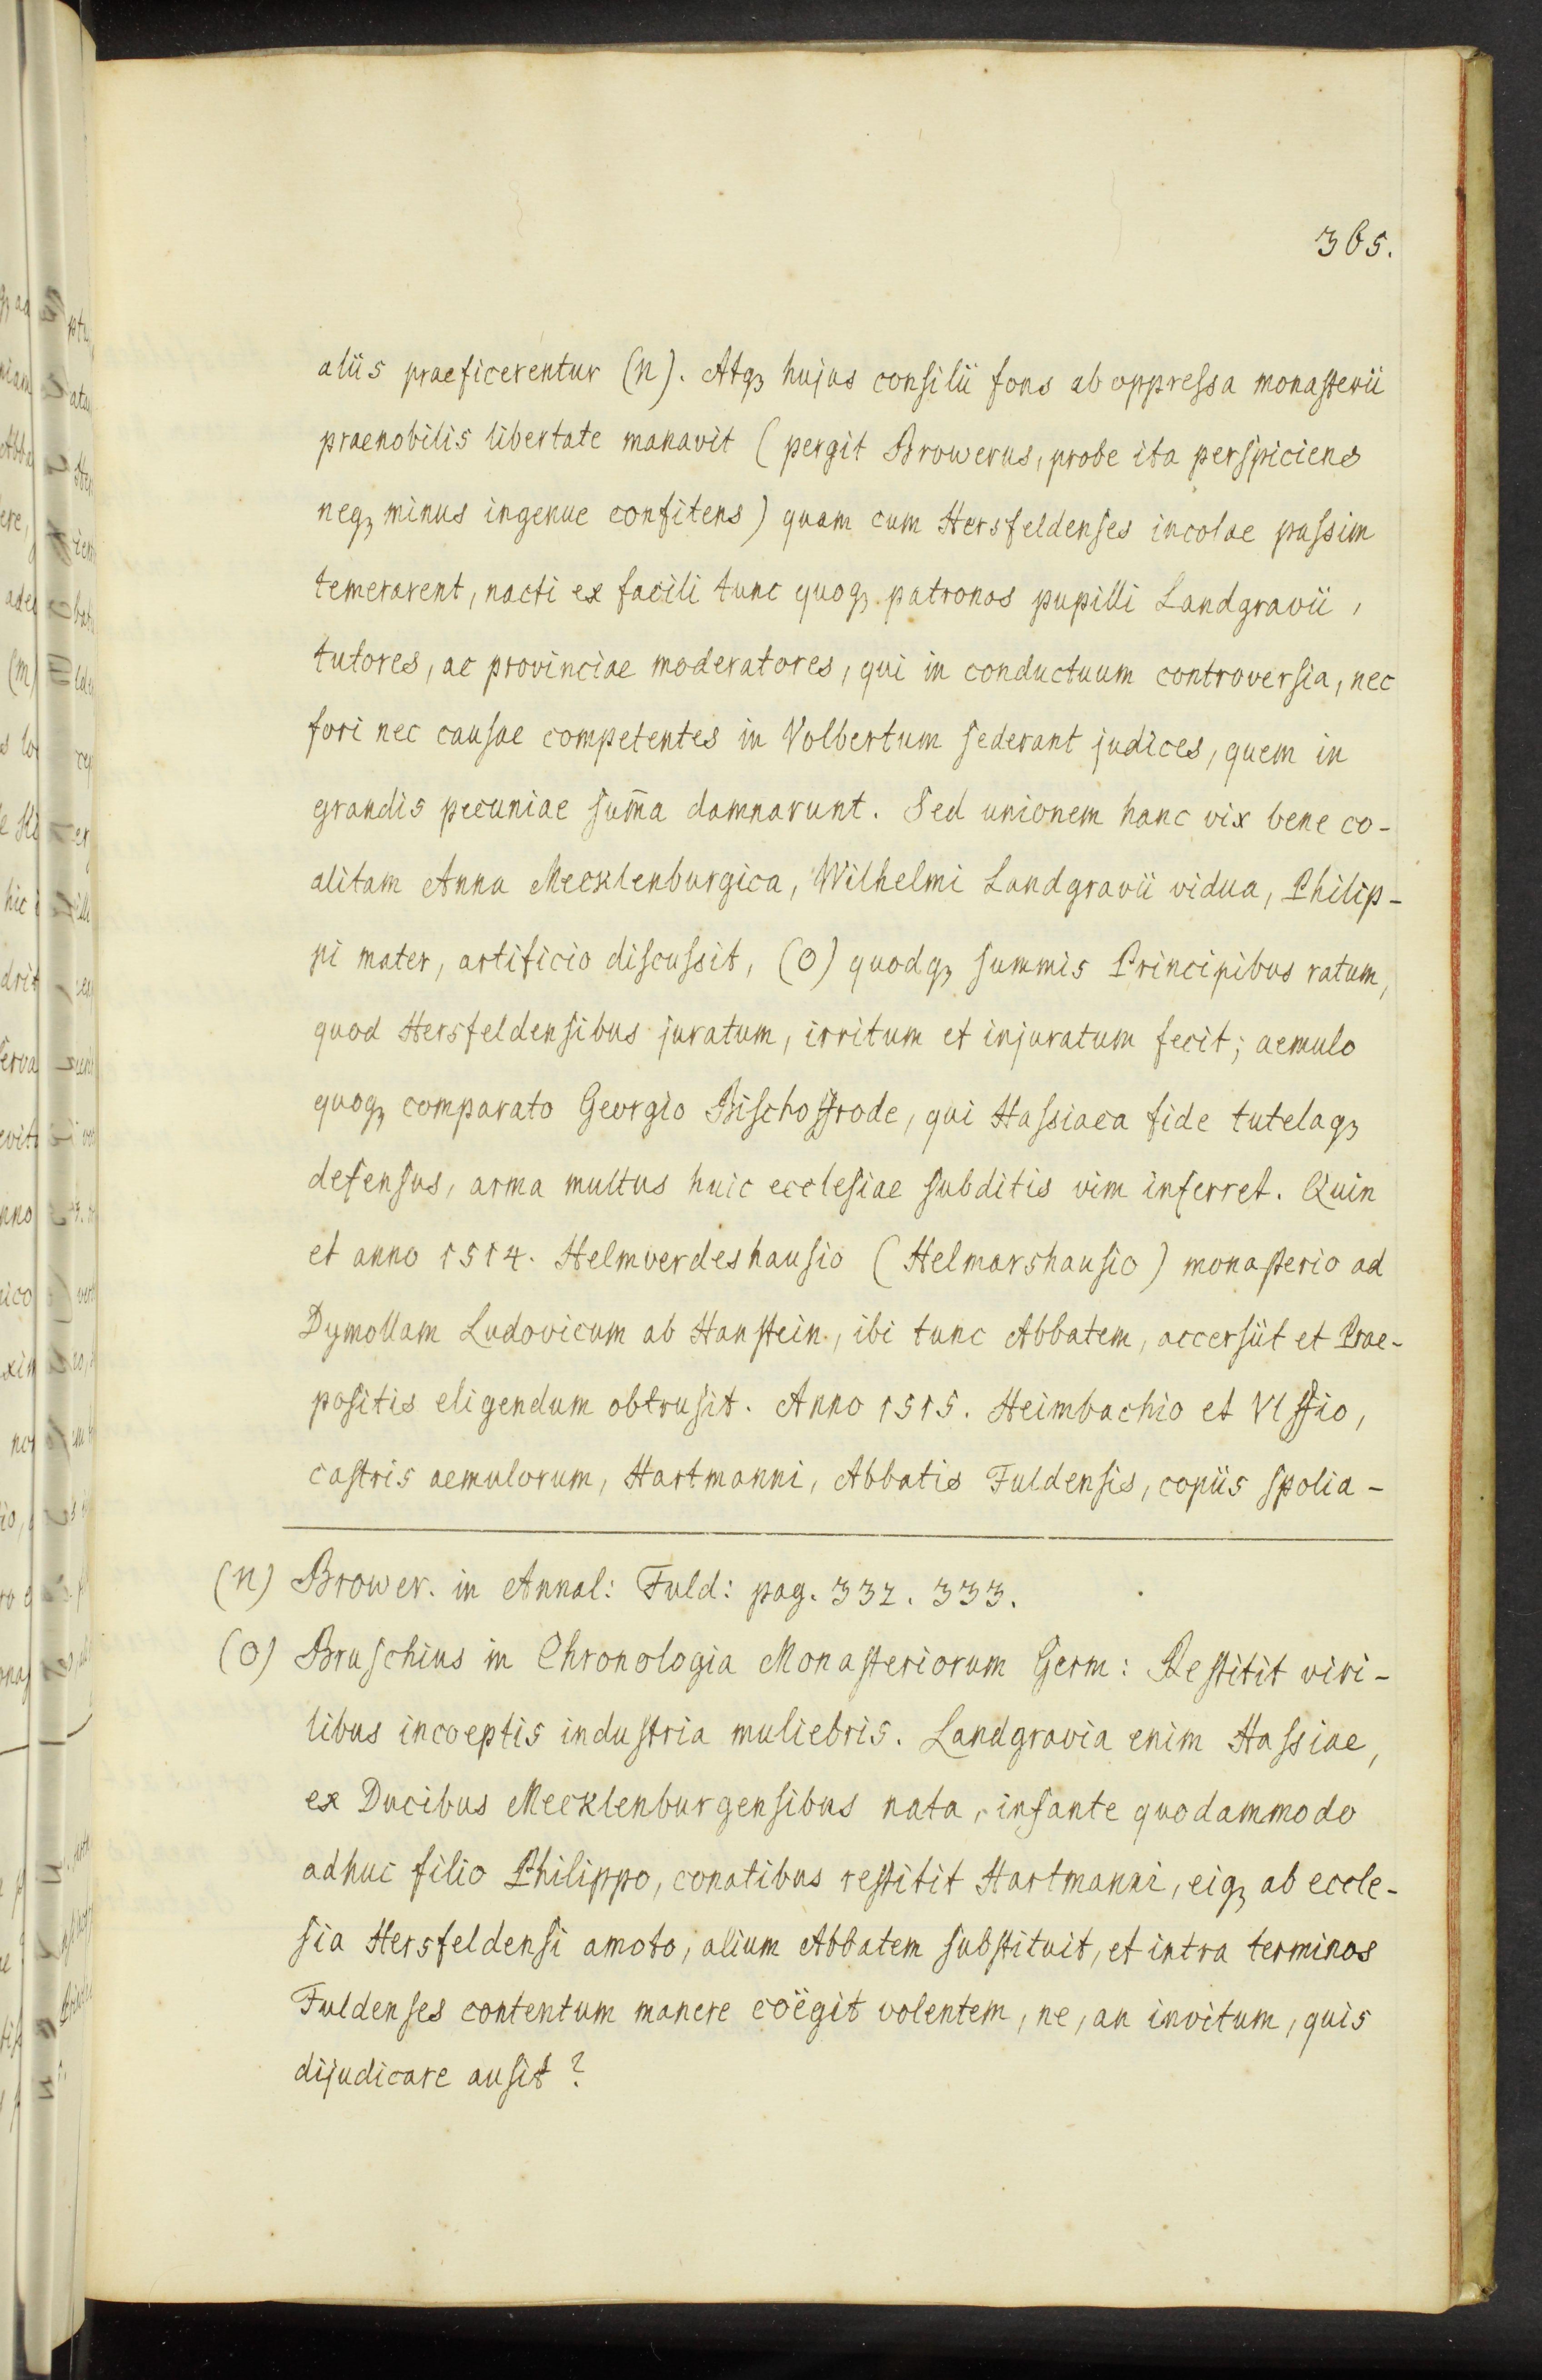 365.
aliis praeficerentur (n). Atqꝫ hujus consilii fons ab oppressa monasterii
praenobilis libertate manavit (pergit Browerus, probe ita perspiciens
neqꝫ minus ingenue confitens) quam cum Hersfeldenses incolae passim
temerarent, nacti ex facili tunc quoqꝫ patronos pupilli Landgravii,
tutores, ac provinciae moderatores, qui in conductuum controversia, nec
fori nec causae competentes in Volbertum sederant judices, quem in
grandis pecuniae sum̄a damnarunt. Sed unionem hanc vix bene co-
alitam Anna Mecklenburgica, Wilhelmi Landgravii vidua, Philip-
pi mater, artificio discussit, (o) quodqꝫ summis Principibus ratum,
quod Hersfeldensibus juratum, irritum et injuratum fecit; aemulo
quoqꝫ comparato Georgio Bischoffrode, qui Hassiaca fide tutelaqꝫ
defensus, arma multus huic ecclesiae subditis vim inferret. Quin
et anno 1514. Helmverdeshausio (Helmarshausio) monasterio ad
Dymollam Ludovicum ab Hanstein, ibi tunc Abbatem, accersiit et Prae-
positis eligendum obtrusit. Anno 1515. Heimbachio et Ulffio,
castris aemulorum, Hartmanni, Abbatis Fuldensis, copiis spolia-
(n) Brower. in Annal: Fuld: pag. 332. 333.
(o) Bruschius in Chronologia Monasteriorum Germ: Restitit viri-
libus incoeptis industria muliebris. Landgravia enim Hassiae,
ex Ducibus Mecklenburgensibus nata, infante quodammodo
adhuc filio Philippo, conatibus restitit Hartmanni, eiqꝫ ab eccle-
sia Hersfeldensi amoto, alium Abbatem substituit, et intra terminos
Fuldenses contentum manere coëgit volentem, ne, an invitum, quis
dijudicare ausit?